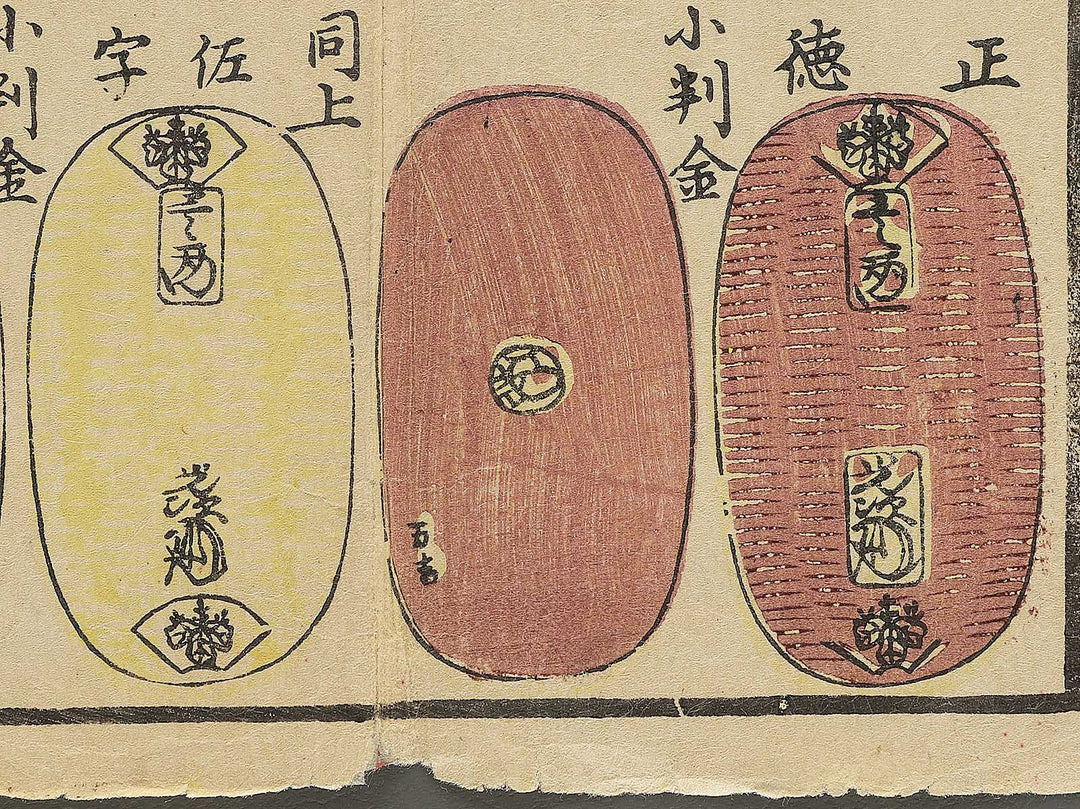 正徳
小判金
壹両
光次
五吉
同上
佐字
壹両
光次
小判金